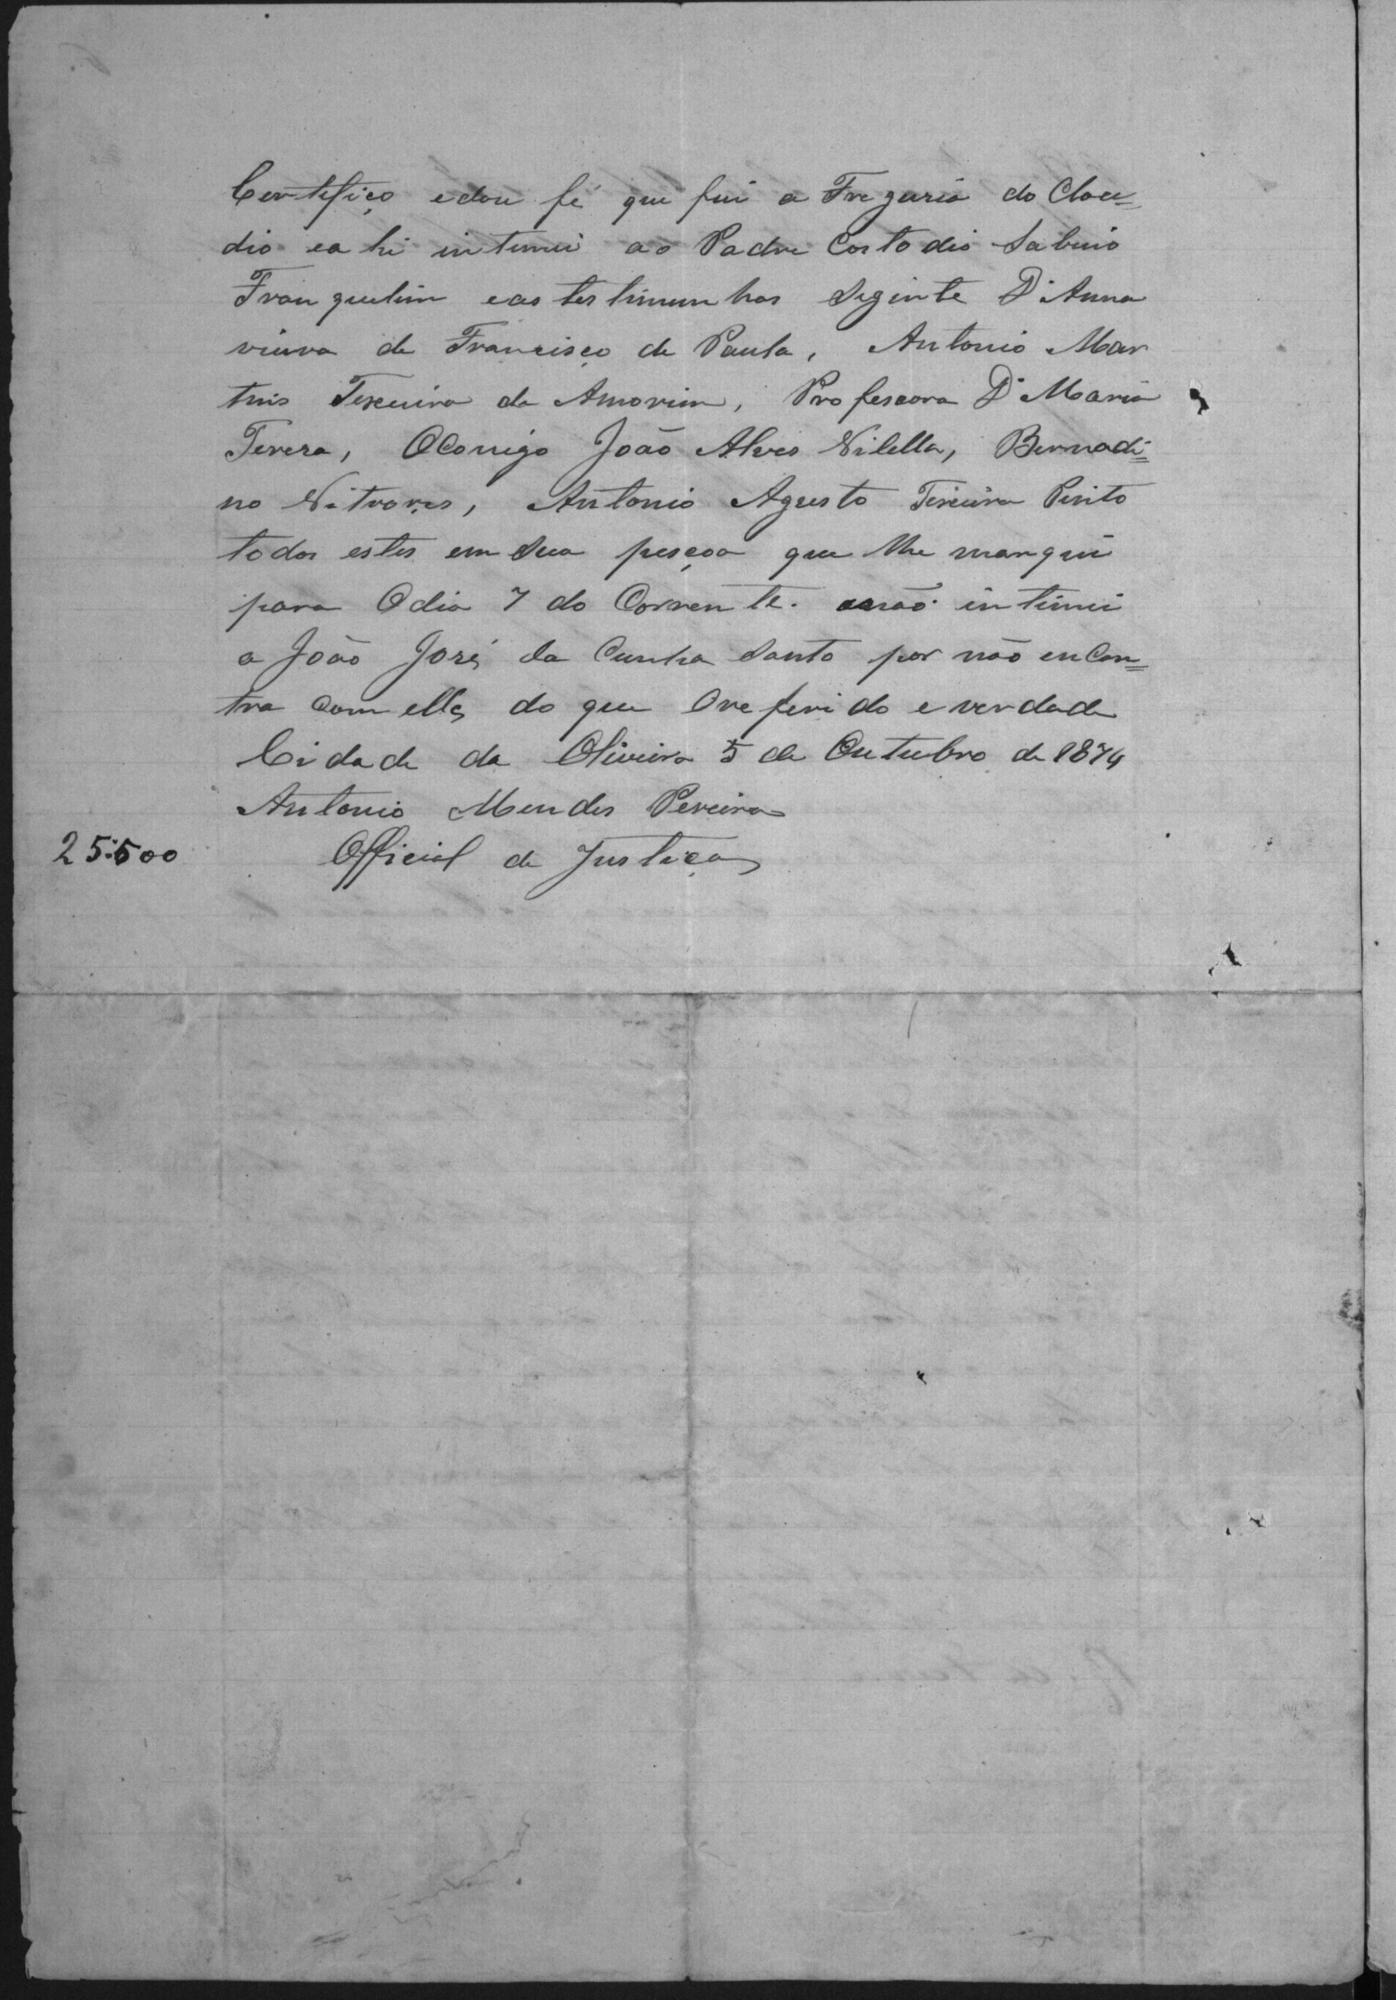 Certifiço edou fé que fui a Freguria do Clau=
dio eahi intimei ao Padre Costodio Sabino
Franquelin eas testimunhas Seginte D. Anna
viuva de Francisco de Paula, Antonio Mar
tins Texeira de Amorim, Professora D. Maria
Tereza, OConigo João Alves Vilella, Bernadi=
no Agusto Texeira Pinto
todos estes em Sua pesçoa que lhe marquei
para Odia 7 do Corrente. enão intimei
a João José da Cunha Santo por não encon=
tra com elle, do que Oreferido e verdade
Cidade da Oliveira 5 de Outubro de 1874
Antonio Mendes Pereira
25:500 Official de Justiça